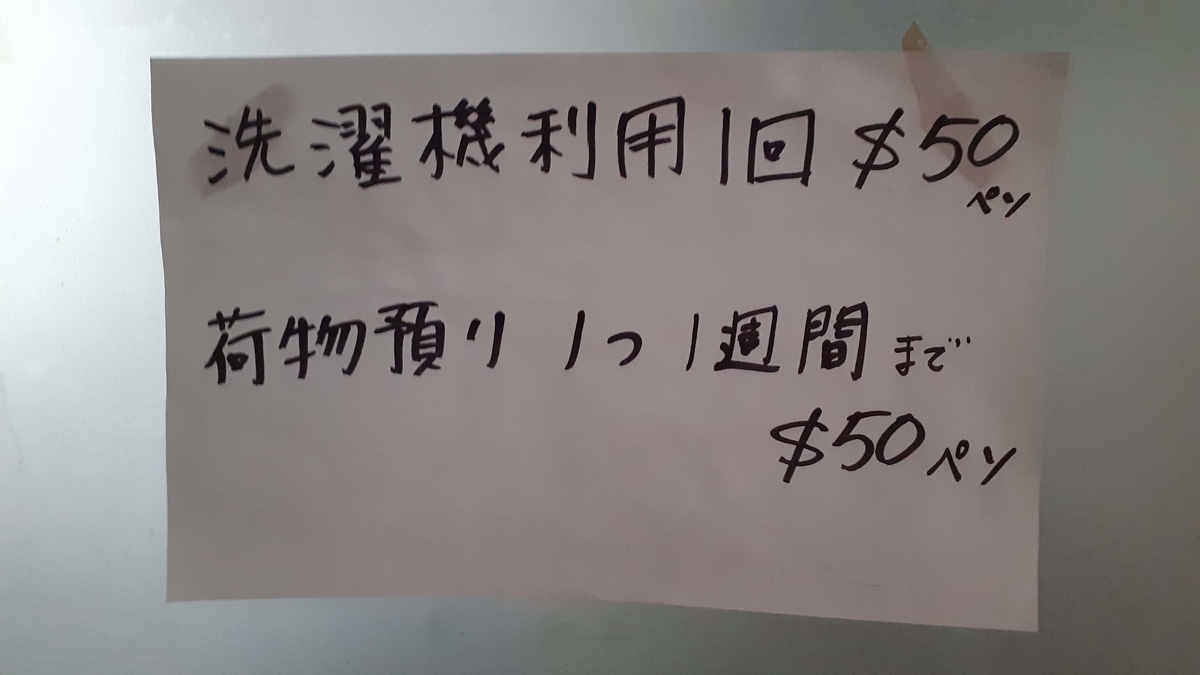 洗濯機利用1回 $50
ペソ
荷物預り 1つ 1週間まで
$50ペソ